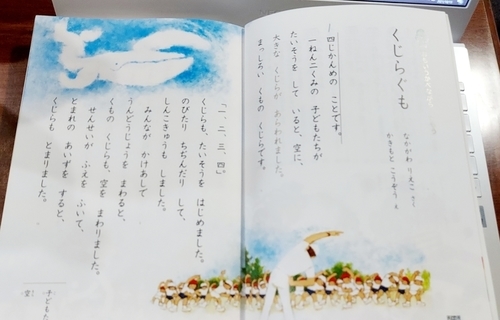 くじらぐも
なかがわ りえこ さく
かきもと こうぞう え
四じかんめの ことです。
一ねん二くみの 子どもたちが
たいそうを して いると、空に、
大きな くじらが あらわれました。
まっしろい くもの くじらです。
「一、二、三、四。」
くじらも、たいそうを はじめました。
のびたり ちぢんだり して、
しんこきゅうも しました。
みんなが かけあしで
うんどうじょうを まわると、
くもの くじらも、空を まわりました。
せんせいが ふえを ふいて、
とまれの あいずを すると、
くじらも とまりました。
子ども
空